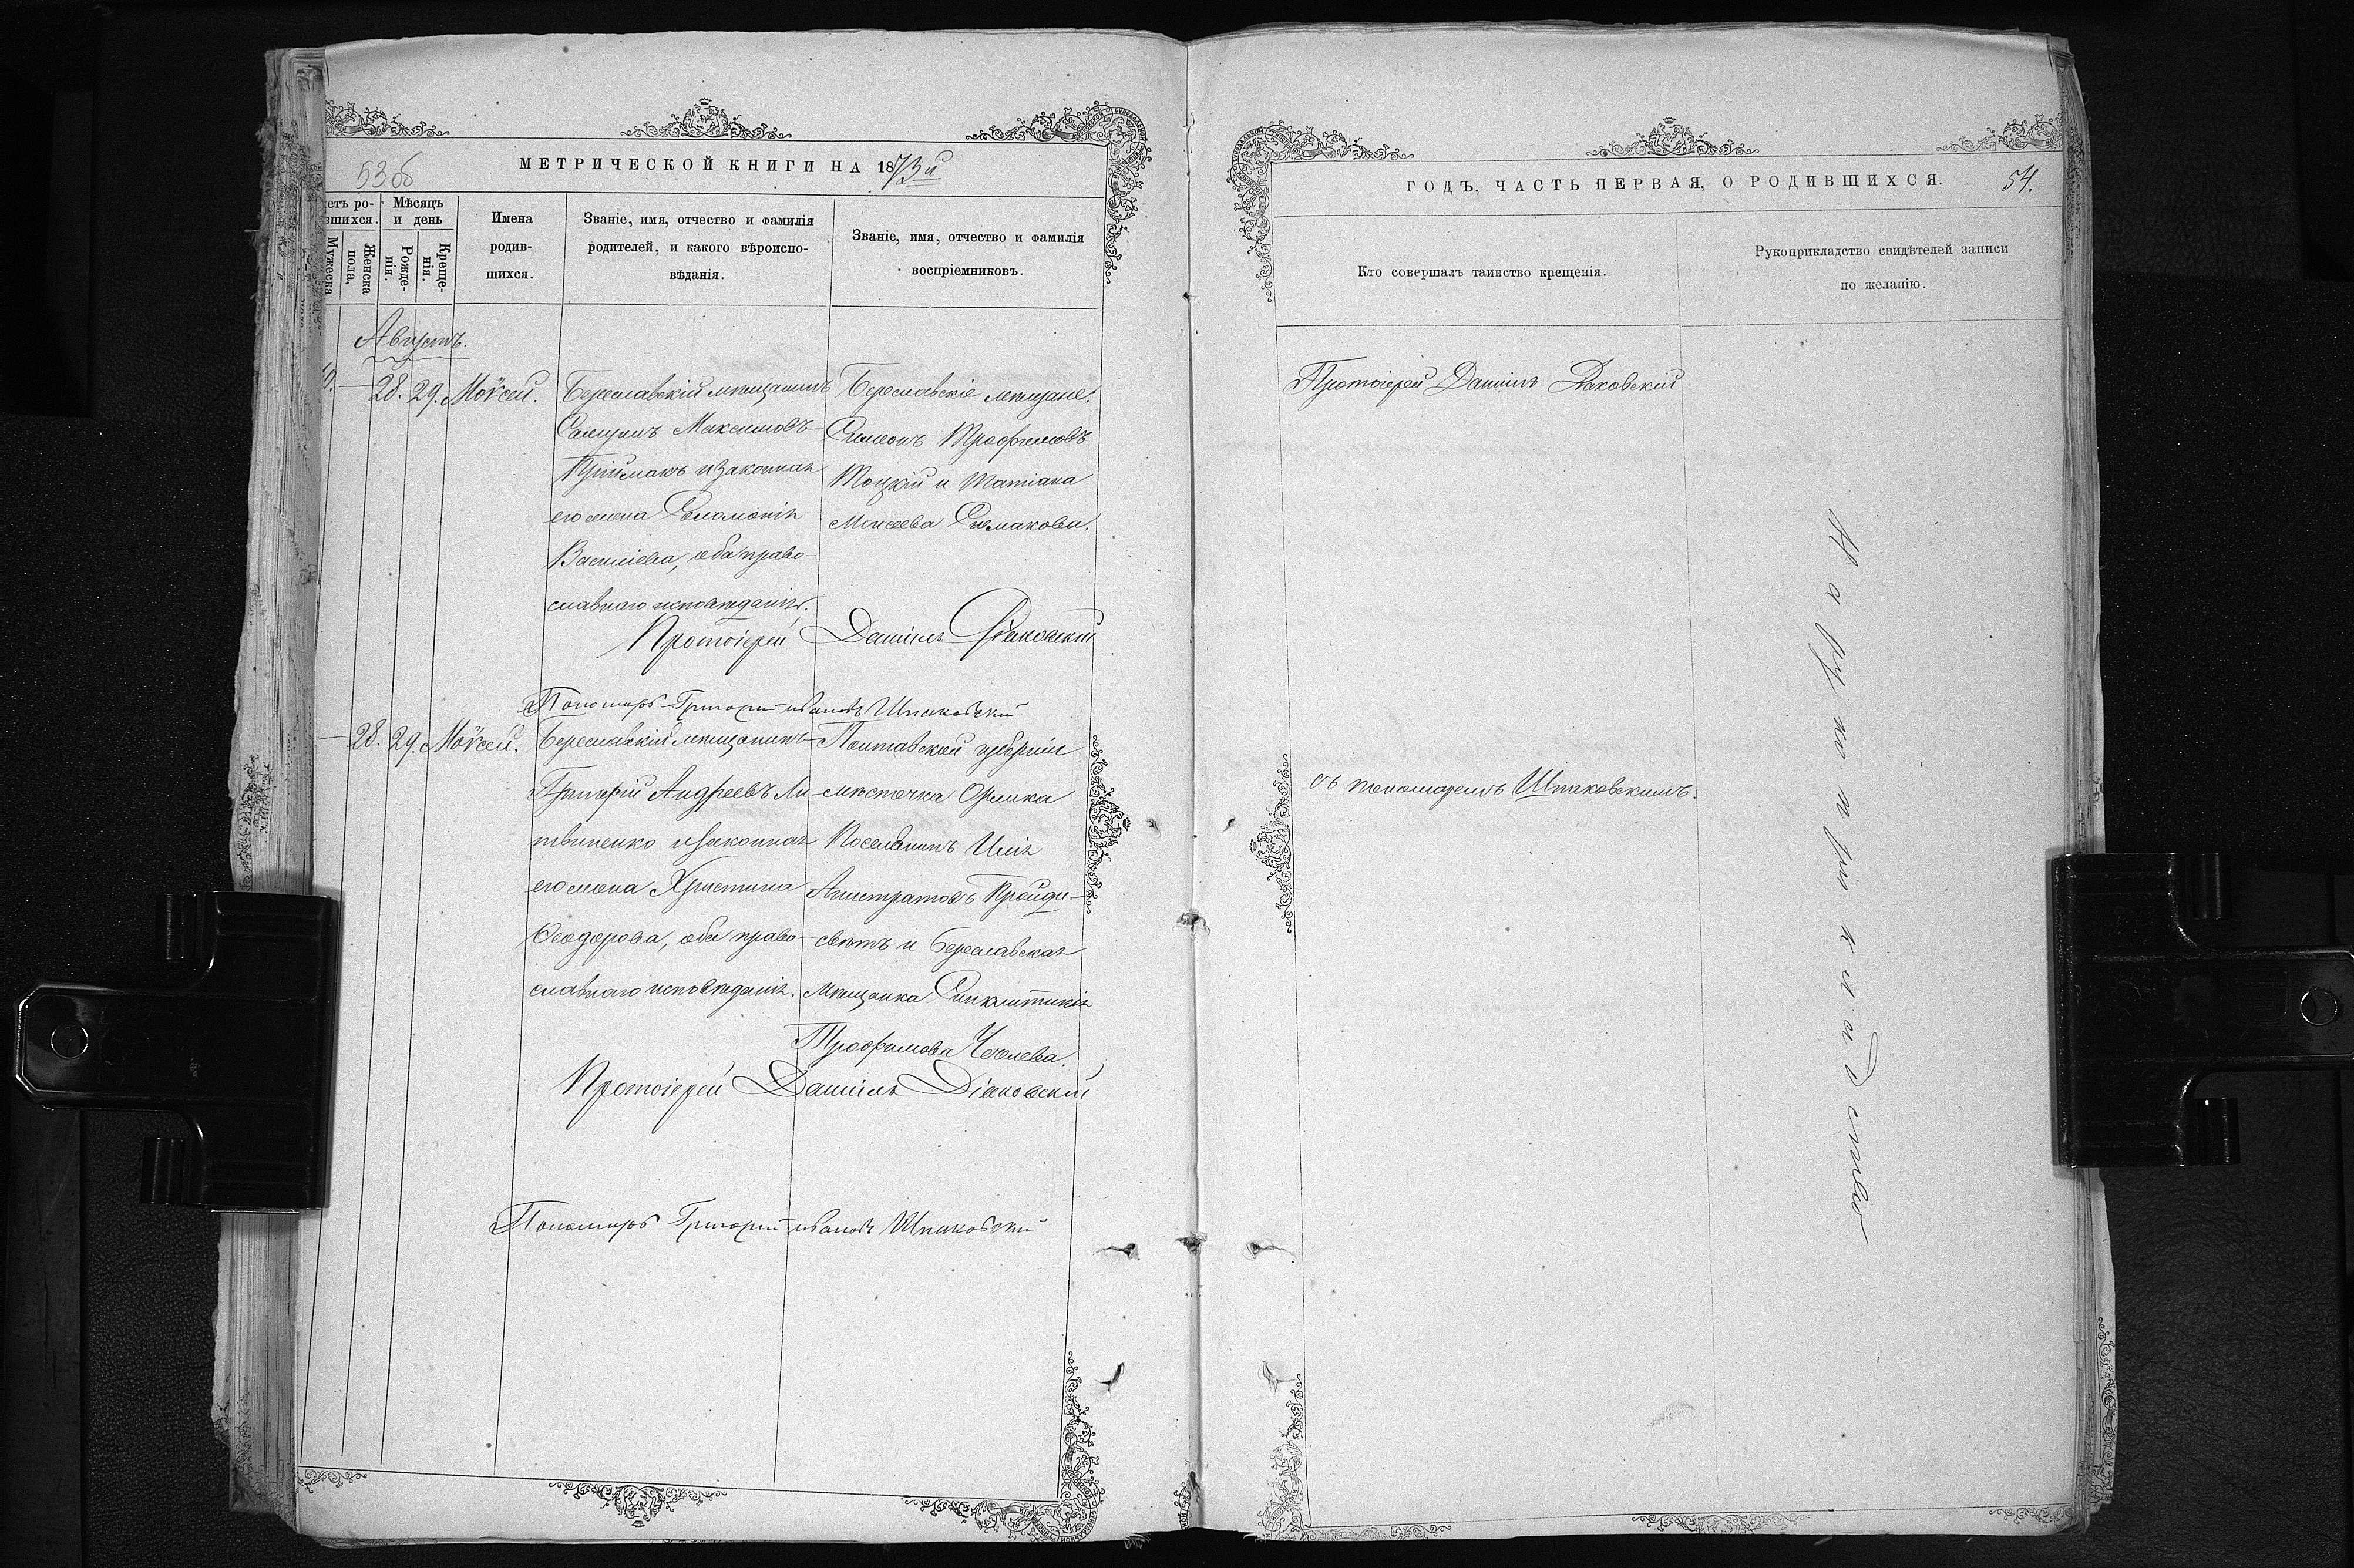 53 об
МЕТРИЧЕСКОЙ КНИГИ НА 1873й
етъ ро-
вшихся.
Мужеска
Женска
пола,
Мѣсяцъ
и день
Рожде-
нія.
Креще-
нія.
Имена
родив-
шихся.
Званіе, имя, отчество и фамилія
родителей, и какого вѣроиспо-
вѣданія.
Званіе, имя, отчество и фамилія
воспріемниковъ.
Августъ.
28. 29. Моѵсей.
Береславскій мѣщанинъ
Максимовъ
Пріймакъ и законная
его жена Соломонія
Василіева, оба право-
славнаго исповѣданія.
Береславскіе мѣщане:
Симеонъ Трофимовъ
Тоцкій и Татіана
Моисеева Симакова.
Протоіерей Даніилъ Діаковскій
Пономарь Григорій Ивановъ Шпаковскій
28. 29. Моѵсей.
Береславскій мѣщанинъ
Григорій Андреевъ Ли-
твиненко и законная
его жена Христина
Ѳеодорова, оба право-
славнаго исповѣданія.
Полтавской губерніи
мѣстечка Орлика
Поселянинъ Илія
Калистратовъ Пройди-
свѣтъ и Береславская
мѣщанка Синклитикія
Трофимова Чечелева.
Протоіерей Даніилъ Діаковскій
Пономарь Григорій Ивановъ Шпаковскій
ГОДЪ, ЧАСТЬ ПЕРВАЯ, О РОДИВШИХСЯ.
54.
Кто совершалъ таинство крещенія.
Рукоприкладство свидѣтелей записи
по желанію.
Протоіерей Даніилъ Діаковскій
съ пономаремъ Шпаковскимъ.